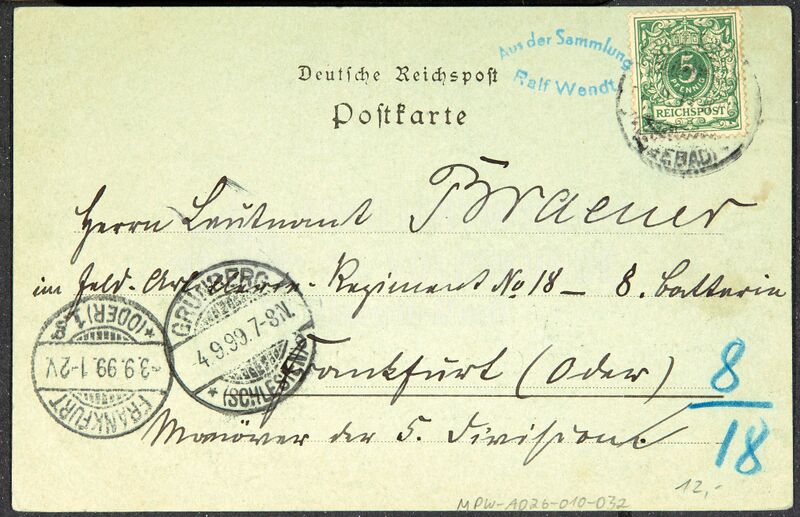 Aus der Sammlung
Ralf Wendt
5
PFENNIG
REICHSPOST
Deutsche Reichspost
Postkarte
(SEEBAD)
Herrn Leutnant Braener
im Feld-Artillerie-Regiment No 18 – 8. Batterie
GRÜNBERG
4.9.99.7-8N.
* (SCHLESIEN) *
FRANKFURT
3.9.99.1-2V.
* (ODER) 1.
Frankfurt (Oder)
8
18
Manöver der 5. Division.
12,-
MPW-A026-010-032